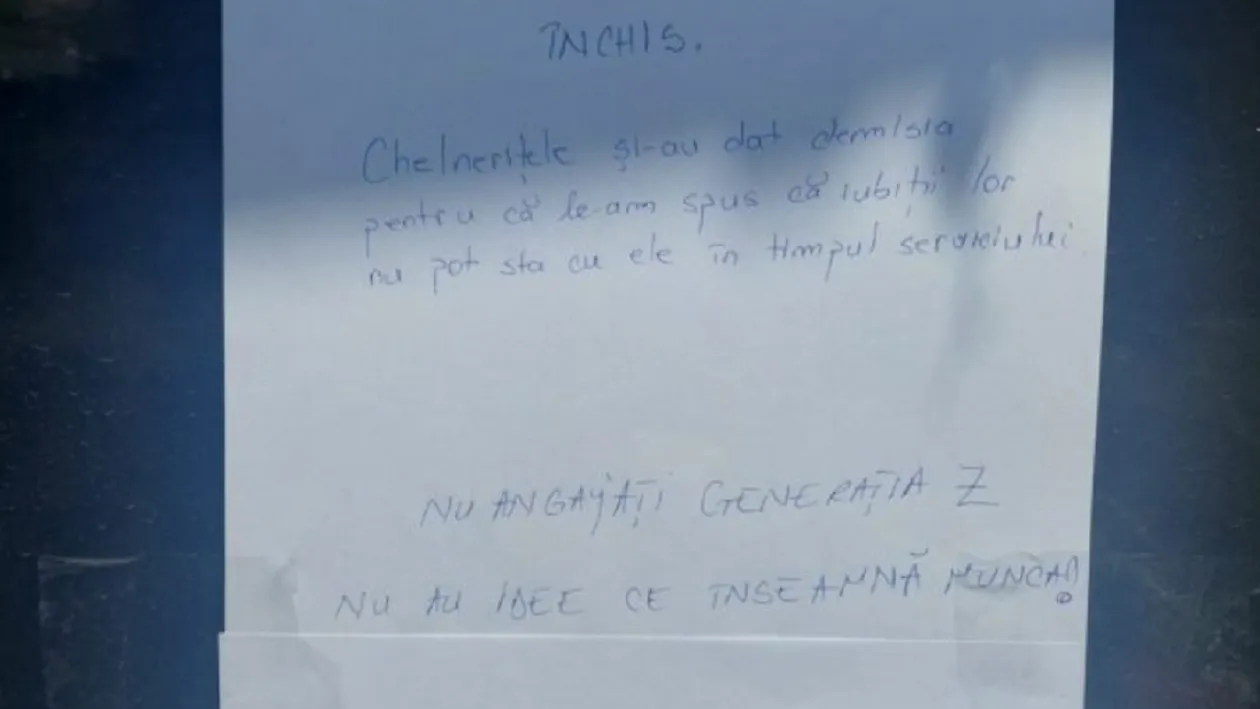 ÎNCHIS.
Chelnerițele și-au dat demisia
pentru că le-am spus că iubiții lor
nu pot sta cu ele în timpul serviciului.
NU ANGAJAȚI GENERAȚIA Z
NU AU IDEE CE ÎNSEAMNĂ MUNCA!